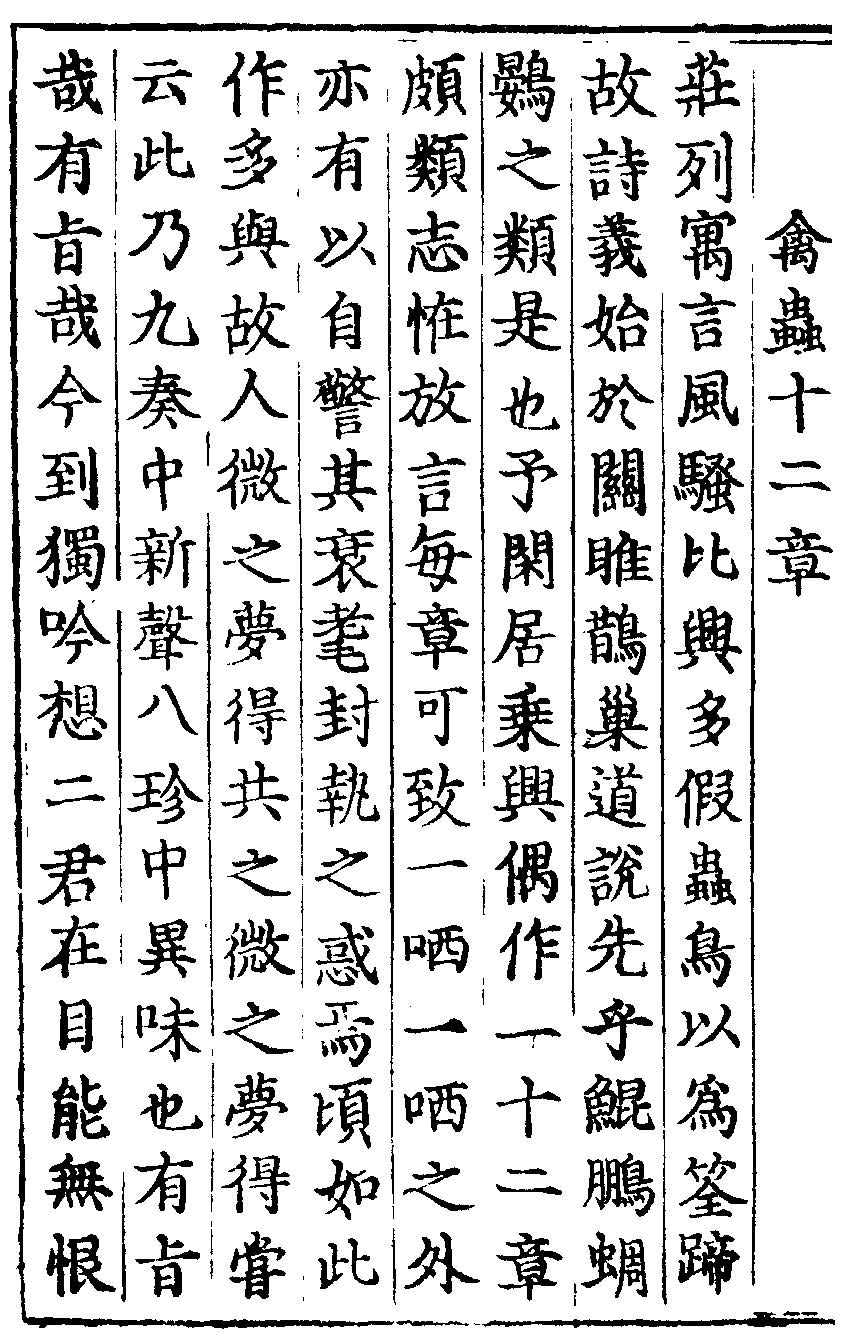 禽蟲十二章
莊列寓言風騷比興多假蟲鳥以爲筌蹄
故詩義始於關雎鵲巢道說先乎鯤鵬蜩
鷃之類是也予閑居乗興偶作一十二章
頗類志恠放言每章可致一哂一哂之外
亦有以自警其衰耄封執之惑焉頃如此
作多與故人微之夢得共之微之夢得甞
云此乃九奏中新聲八珍中異味也有旨
哉有旨哉今到獨吟想二君在目能無恨